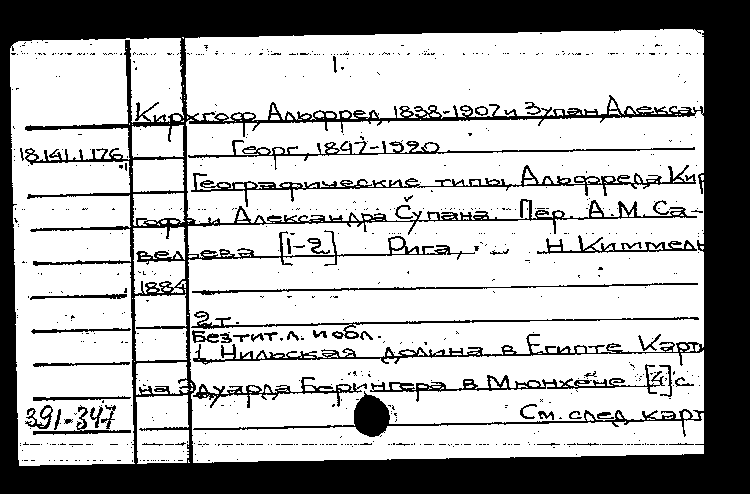 1.
Кирхгоф, Альфред, 1838-1907 и Зупан, Алексан
18.141.1.176 Георг, 1847-1920.
Географические типы, Альфреда Кир
гофа и Александра Супана. Пер. А.М. Са-
вельева [1-2] Рига, Н. Киммель
1884
2 т.
Без тит.л. и обл.
1 Нильская долина в Египте Карти
на Эдуарда Берингера в Мюнхене [4] с
391-347 См. след карт